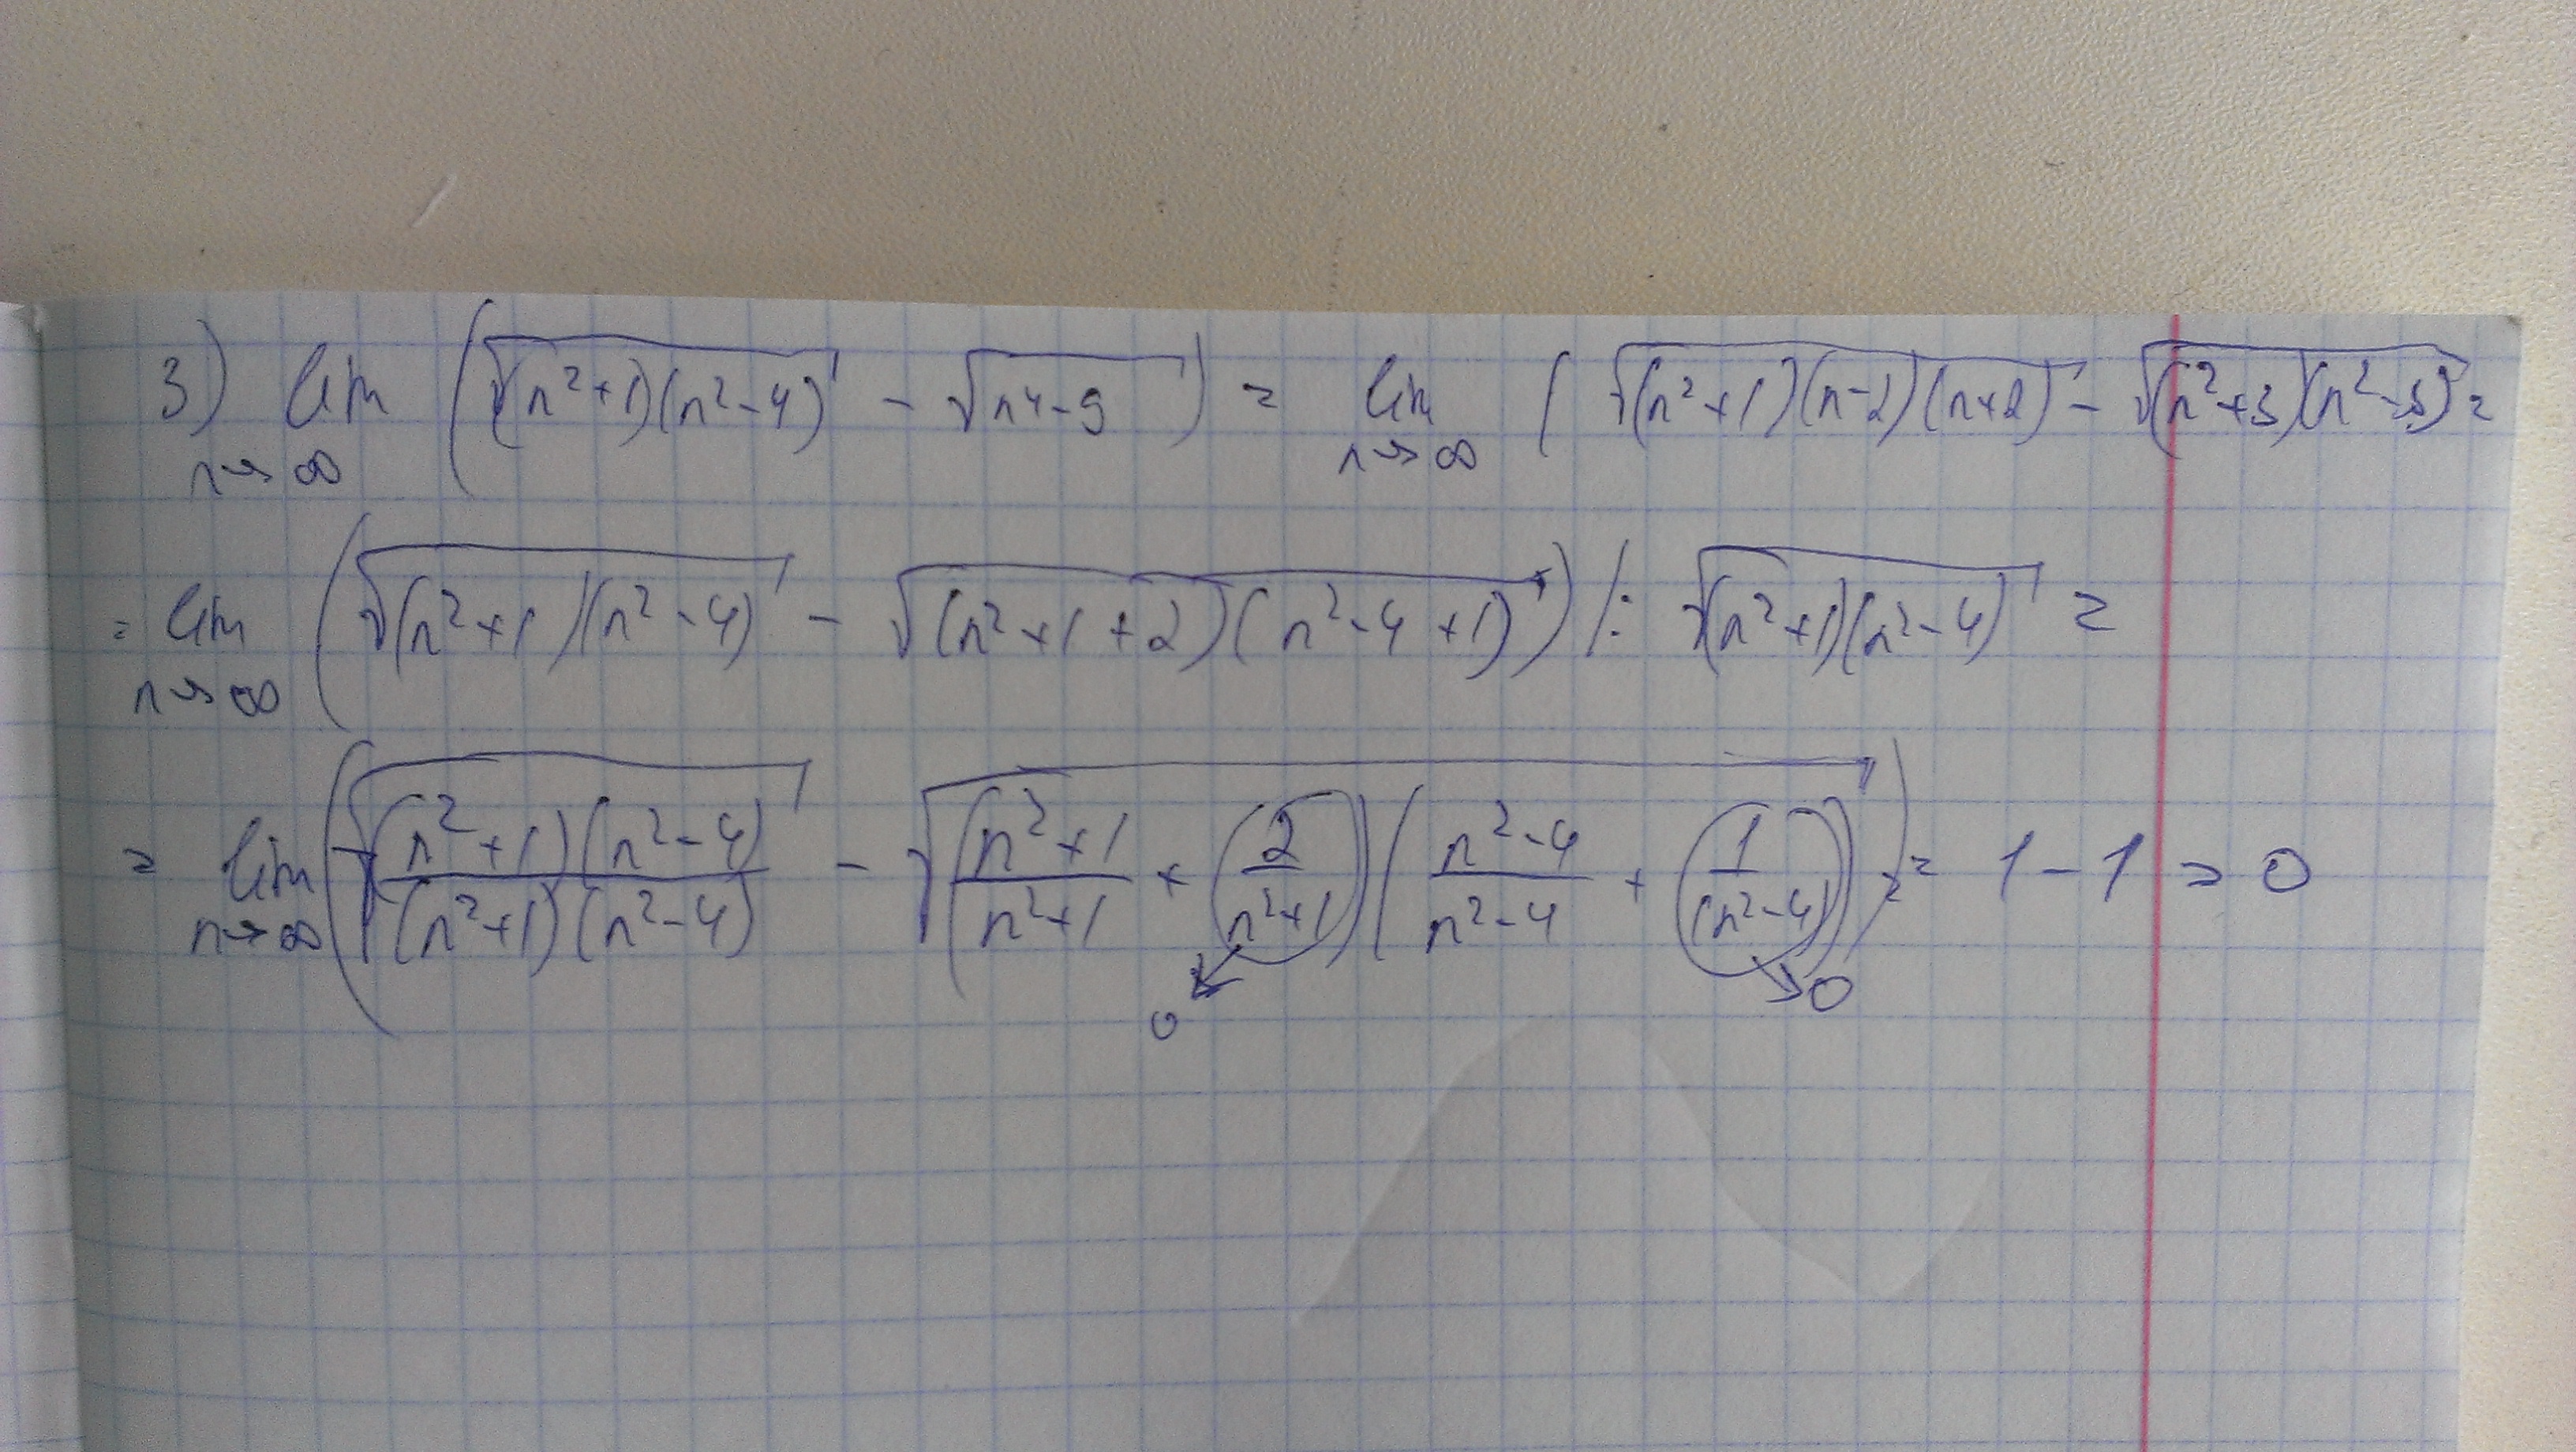 3) lim n→∞ (√((n²+1)(n²-4)) - √(n⁴-9)) = lim n→∞ (√((n²+1)(n-2)(n+2)) - √((n²+3)(n²-3)) =
= lim n→∞ (√((n²+1)(n²-4)) - √((n²+1+2)(n²-4+1))) /: √((n²+1)(n²-4)) =
= lim n→∞ (√(((n²+1)(n²-4))/((n²+1)(n²-4))) - √(((n²+1)/(n²+1) + 2/(n²+1))((n²-4)/(n²-4) + 1/(n²-4)))) = 1-1 = 0
0 0